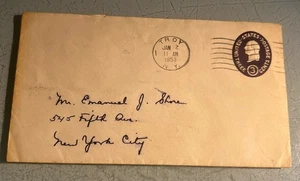 TROY
JAN 2
11 AM
1953
N.Y.
UNITED STATES POSTAGE
3
Mr. Emanuel J. Shore
545 Fifth Ave.
New York City